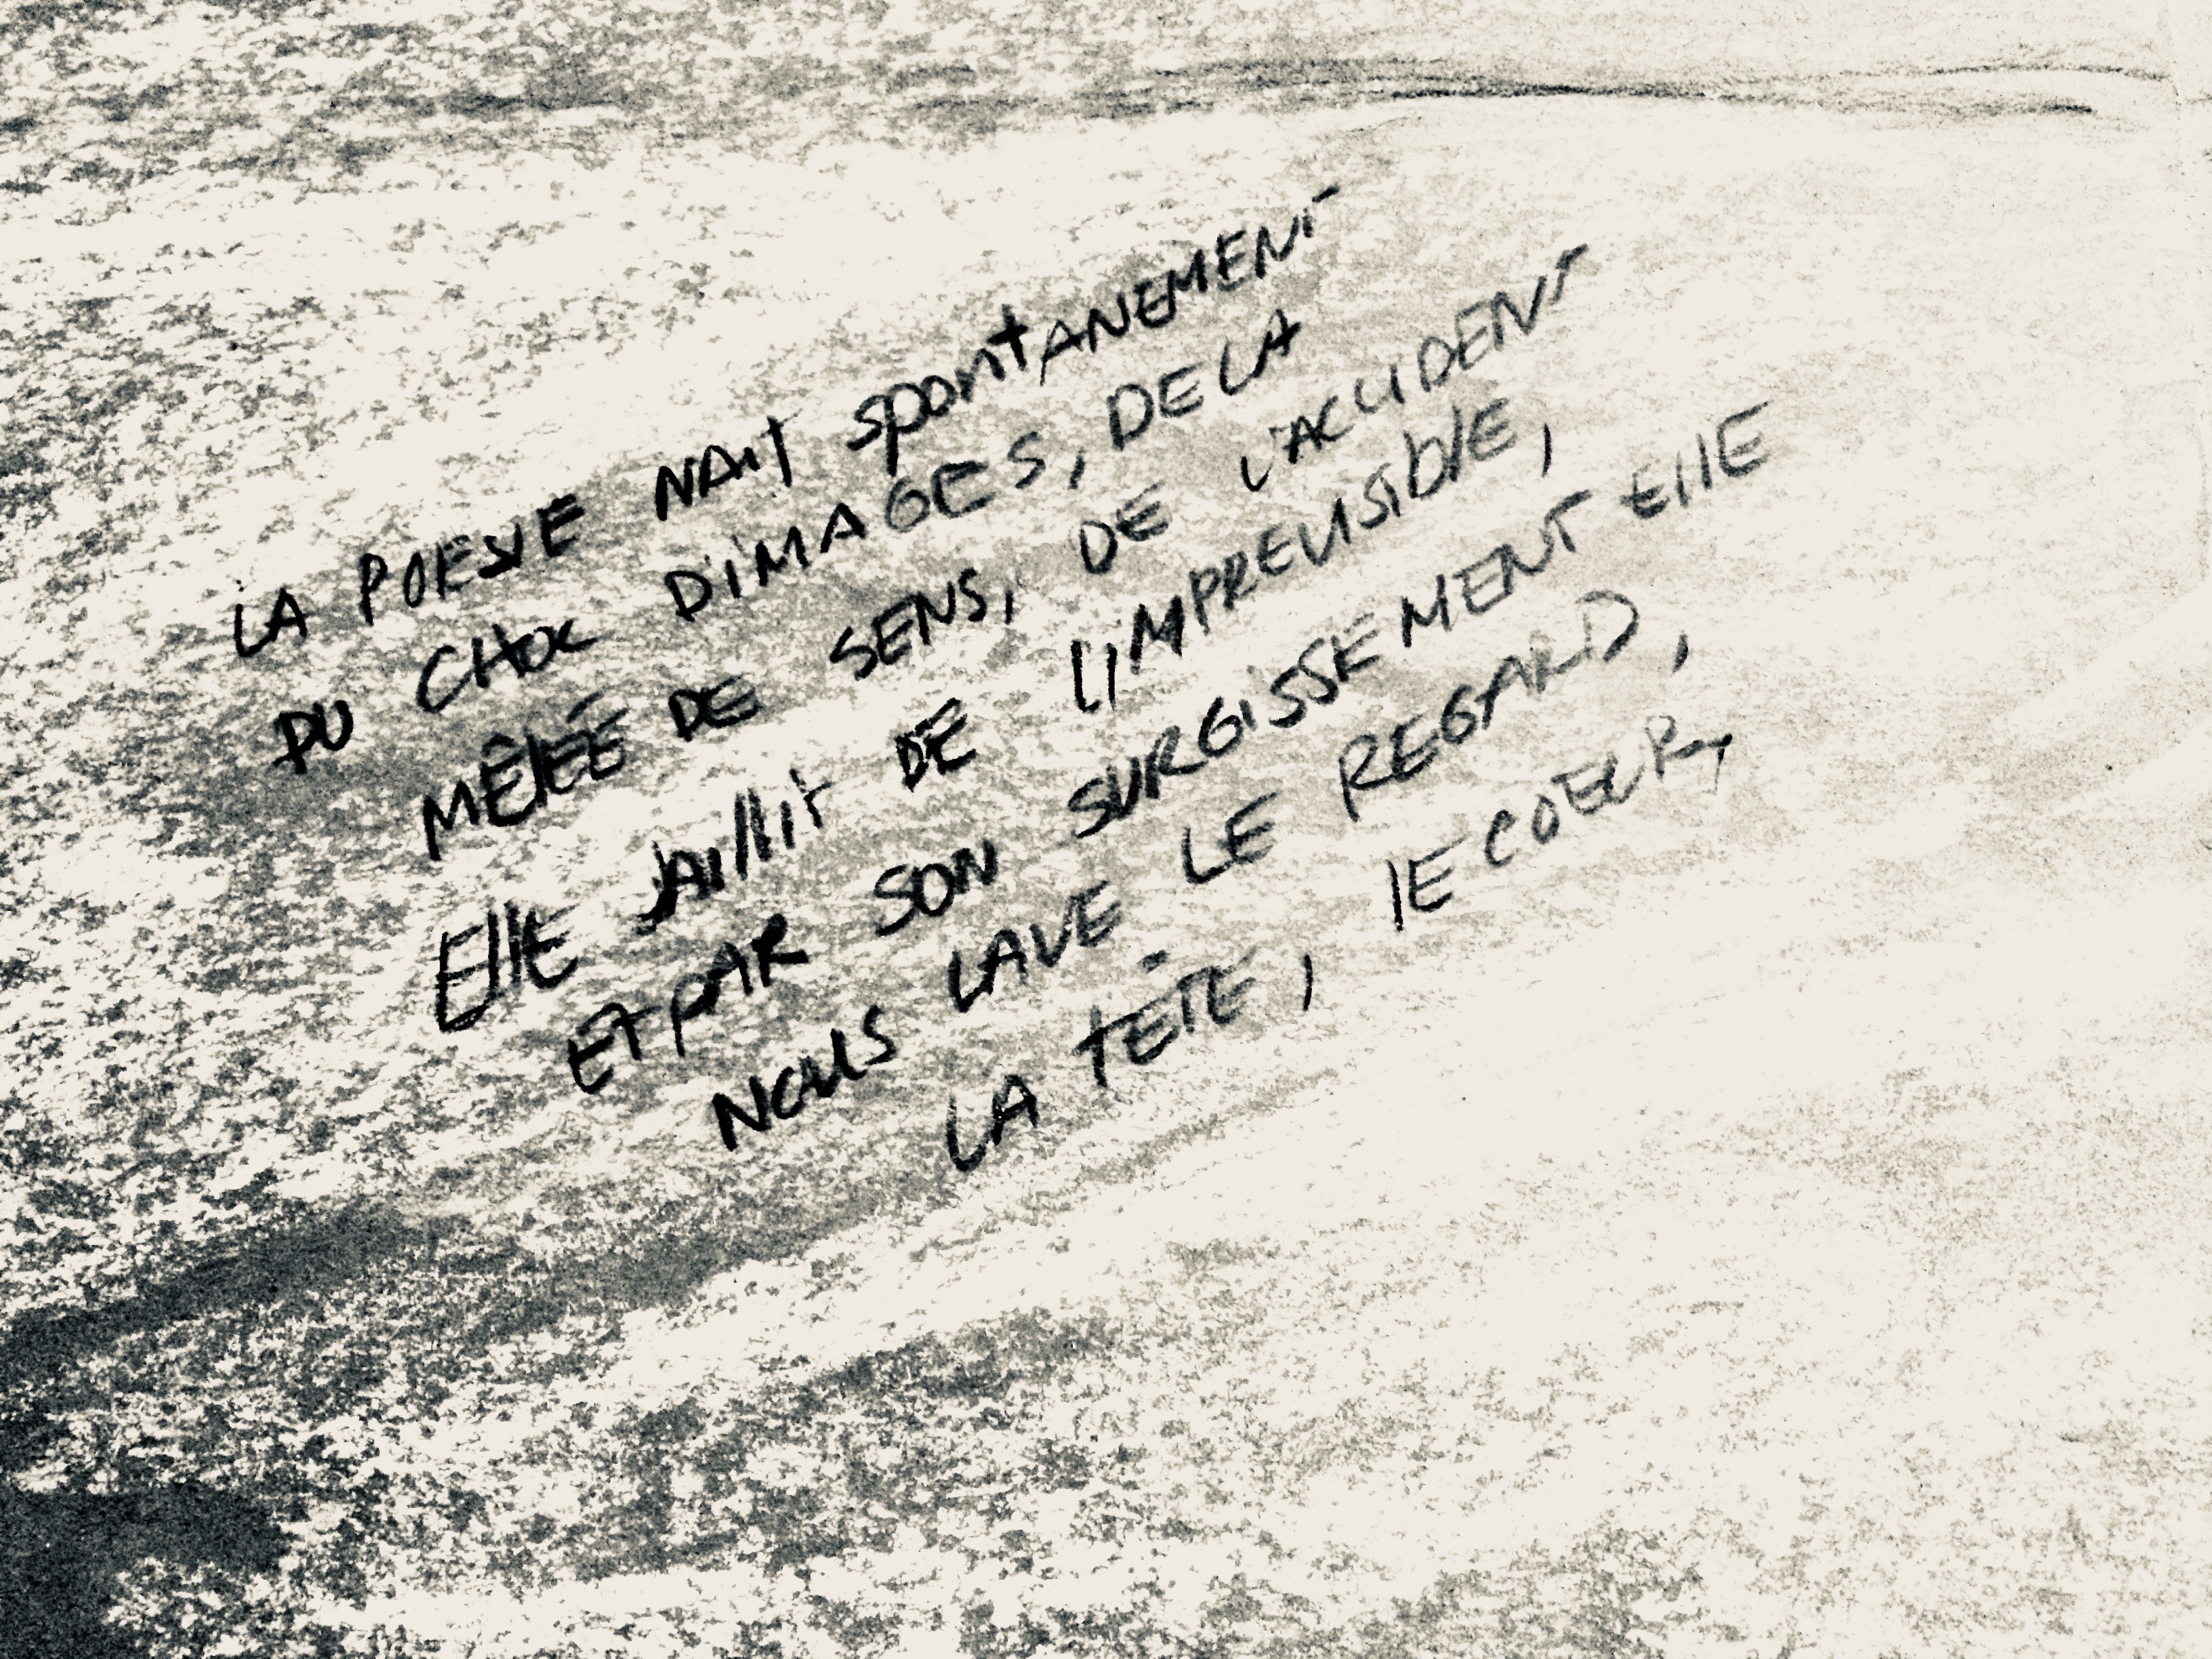 LA POESIE NAIT spontANEMENT
DU CHOC D'IMAGES, DE LA
MÊlÉE DE SENS, DE L'ACCIDENT
EllE JAillit DE L'IMPREVISIblE,
ET PAR SON SURGISSEMENT EllE
NOUS LAVE LE REGARD,
LA TETE, lE COEUR,